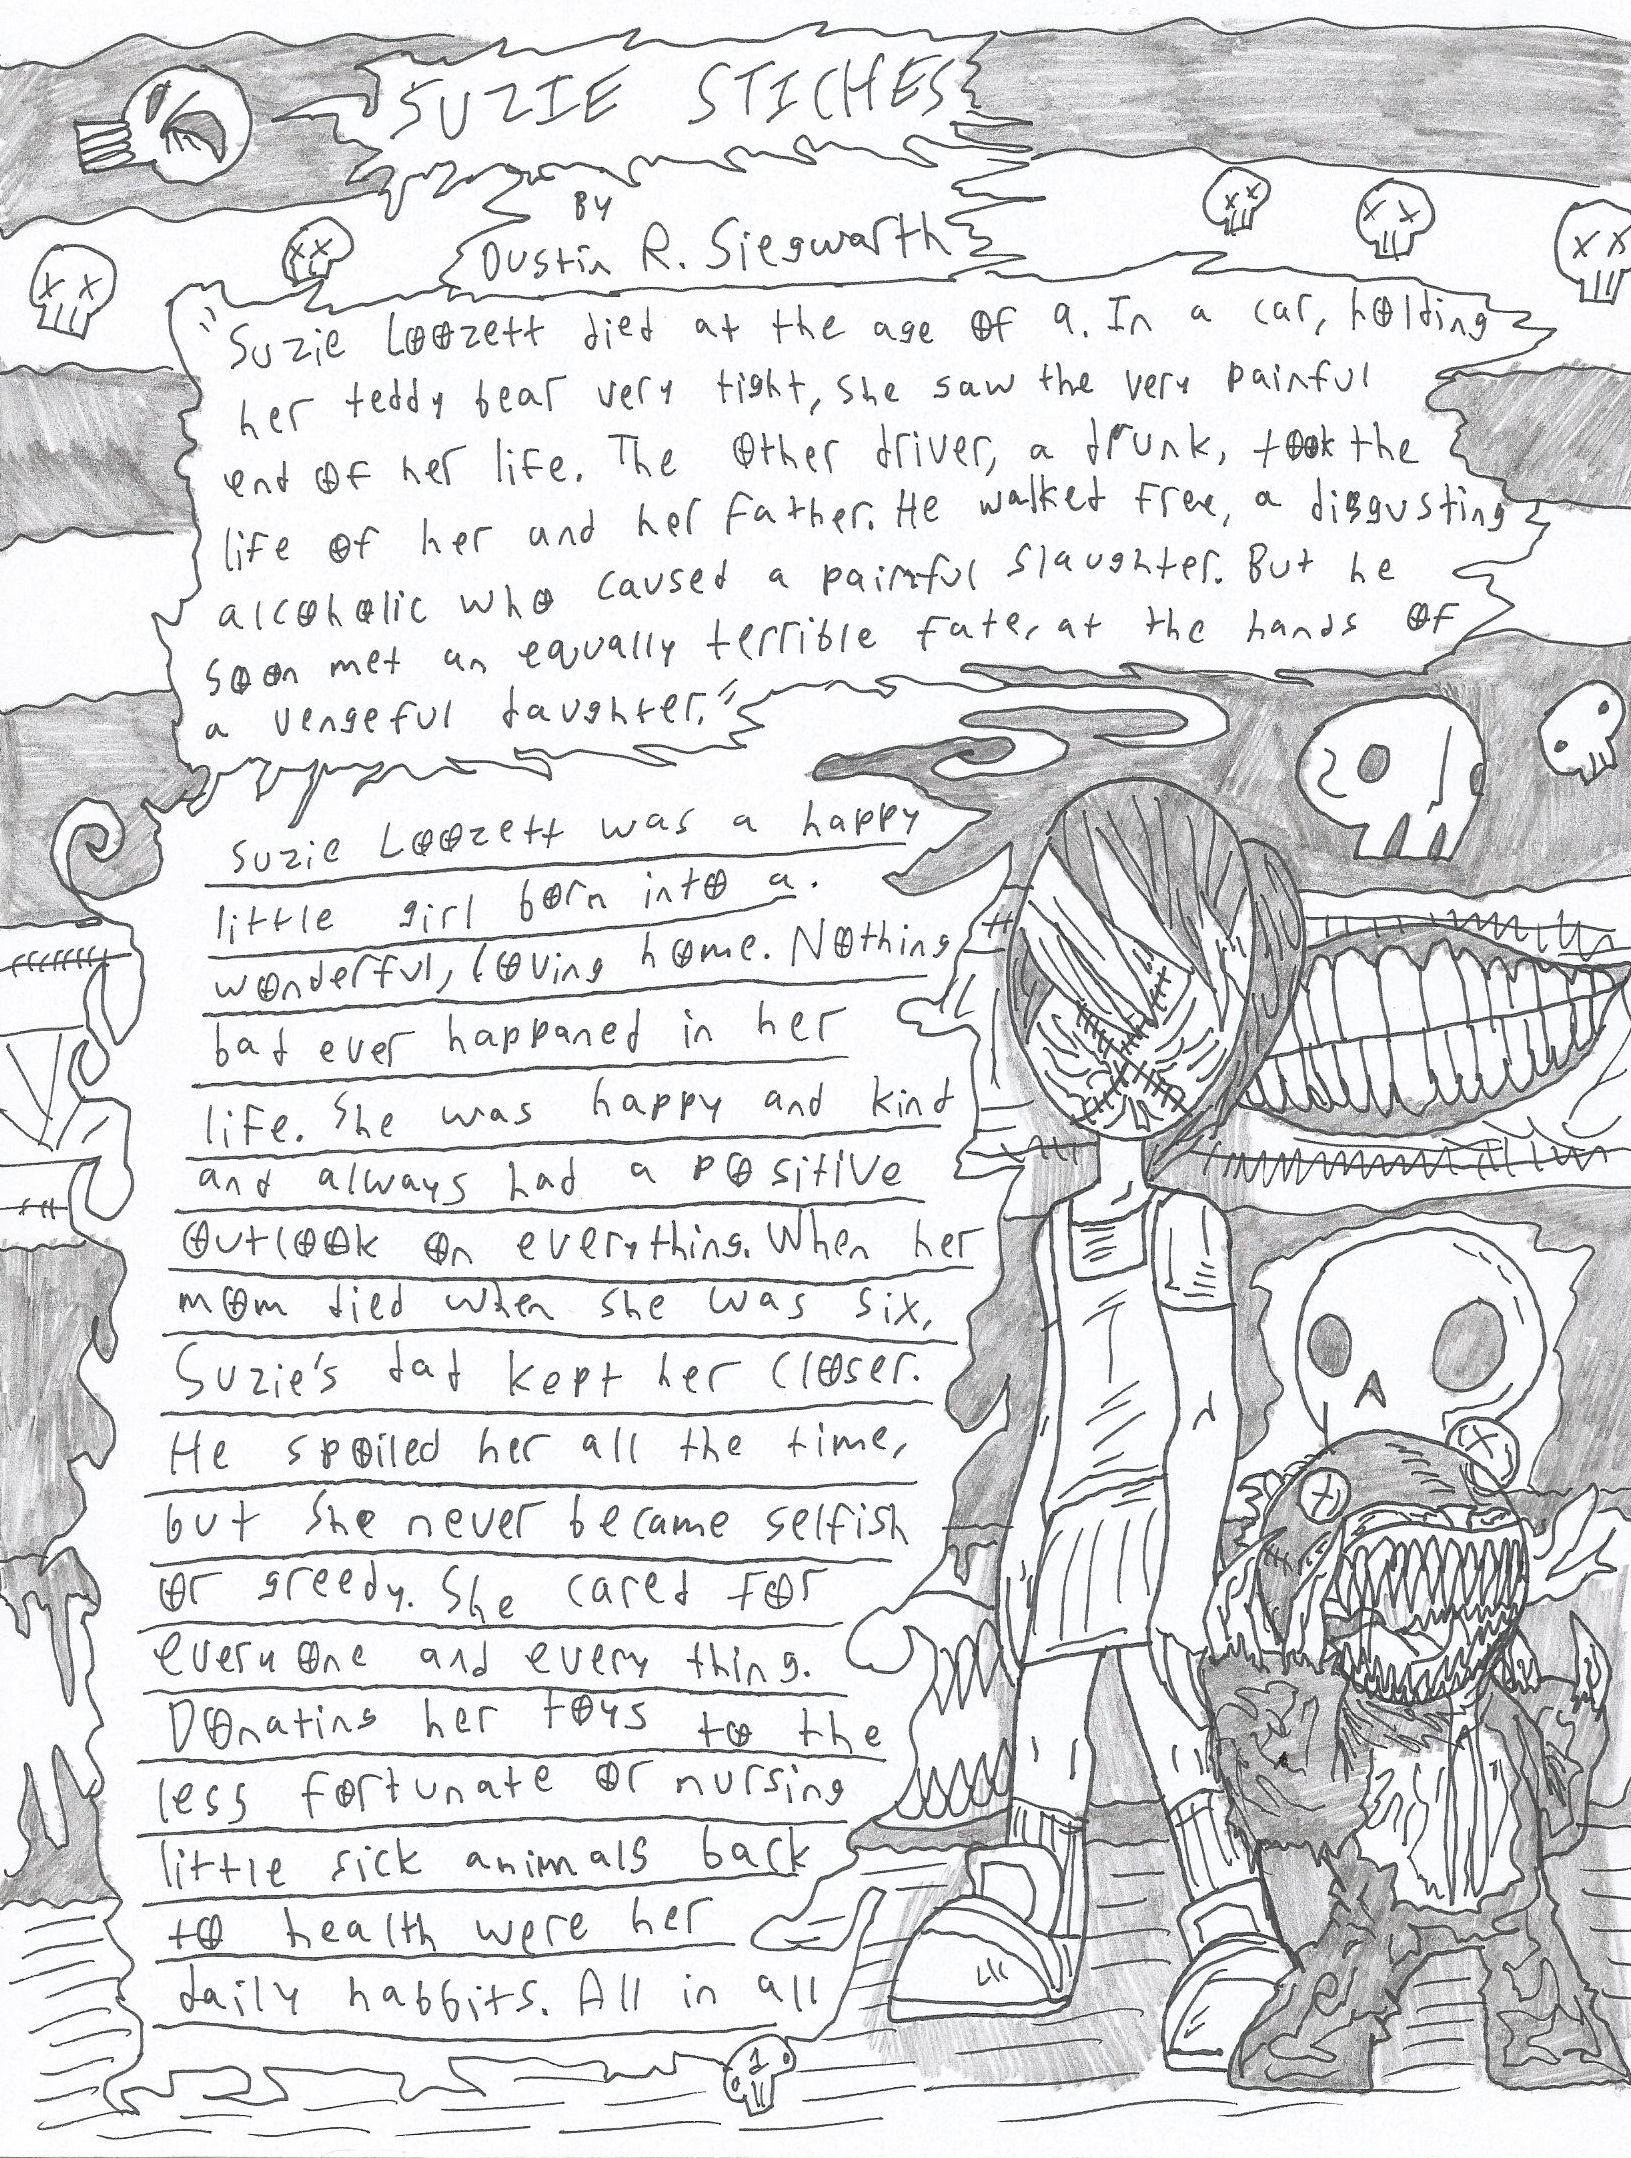 SUZIE STICHES
BY
Dustin R. Siegwarth
"Suzie Loozett died at the age of 9. In a car, holding
her teddy bear very tight, she saw the very painful
end of her life. The other driver, a drunk, took the
life of her and her father. He walked free, a disgusting
alcoholic who caused a painful slaughter. But he
soon met an equally terrible fate, at the hands of
a vengeful daughter."
Suzie Loozett was a happy
little girl born into a.
wonderful, loving home. Nothing
bad ever happaned in her
life. She was happy and kind
and always had a positive
outlook on everything. When her
mom died when she was six,
Suzie's dad kept her closer.
He spoiled her all the time,
but she never became selfish
or greedy. She cared for
everyone and every thing.
Donating her toys to the
less fortunate or nursing
little sick animals back
to health were her
daily habbits. All in all
1